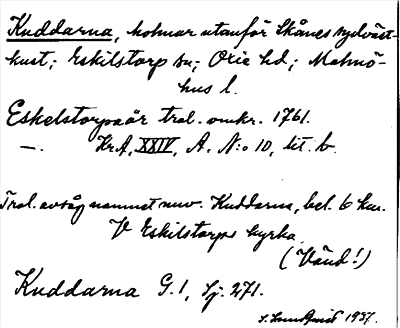 Kuddarna, holmar utanför Skånes sydväst-
kust; Eskilstorp sn; Oxie hd; Malmö-
hus l.
Eskelstorpsöar trol. omkr. 1761.
—. KrA, XXIV, A, N:o 10, lit. b.
Trol. avsåg namnet nuv. Kuddarna, bel. 6 km.
V Eskilstorps kyrka.
(Vänd!)
Kuddarna G. 1, Sj. 271.
S. Lundqvist 1937.